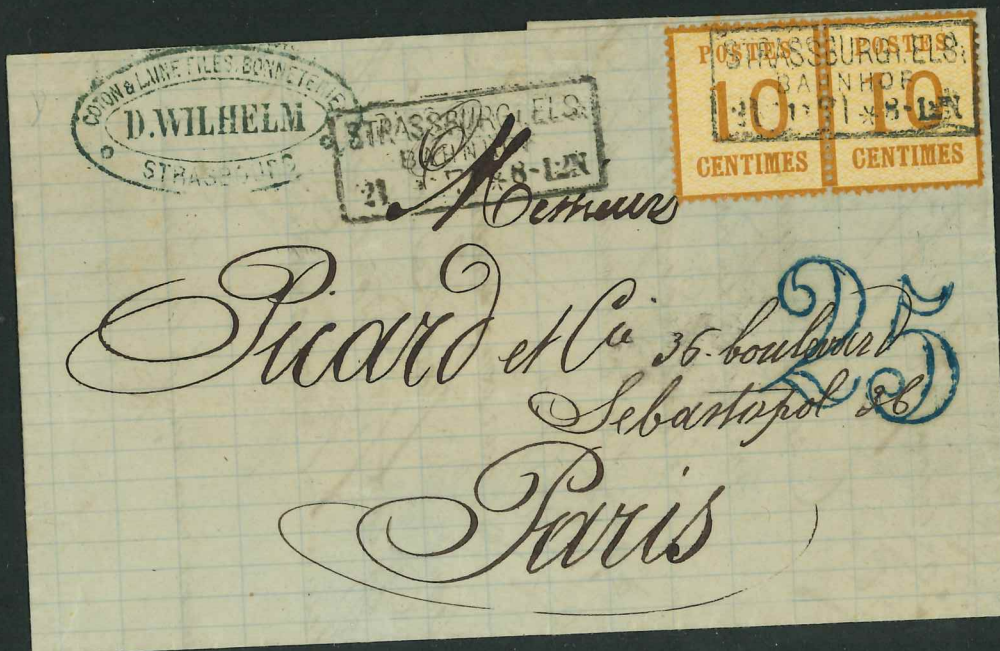 COTON & LAINE FILÉS, BONNETERIE
D. WILHELM
STRASBOURG
STRASSBURG I. ELS.
BAHNHOF
21 7 * 8-12N
POSTES
10
CENTIMES
POSTES
10
CENTIMES
STRASSBURG I. ELS.
BAHNHOF
21 71 * 8-12N
Messieurs
Picard et Cie 36 boulevard
Sebastopol 36
Paris
25